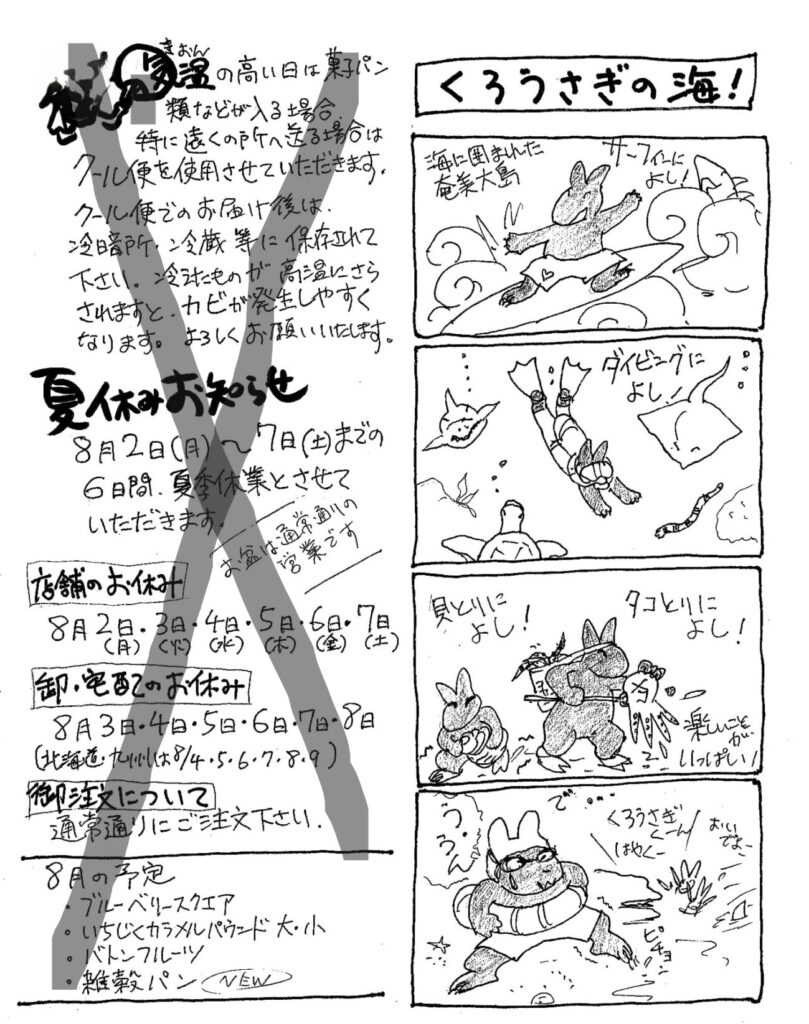 気温の高い日は菓子パン
きおん
類などが入る場合、
特に遠くの所へ送る場合は
クール便を使用させていただきます。
クール便でのお届け後は、
冷暗所・冷蔵等に保存されて
下さい。冷えたものが高温にさら
されますと、カビが発生しやすく
なります。よろしくお願いいたします。
夏休みお知らせ
8月2日(月)〜7日(土)までの
6日間、夏季休業とさせて
いただきます。
お盆は通常通りの
営業です
店舗のお休み
8月2日・3日・4日・5日・6日・7日
(月) (火) (水) (木) (金) (土)
卸・宅配のお休み
8月3日・4日・5日・6日・7日・8日
(北海道・九州は8/4・5・6・7・8・9)
御注文について
通常通りにご注文下さい.
8月の予定
・ブルーベリースクエア
・いちじくカラメルパウンド 大・小
・バトンフルーツ
・雑穀パン NEW
くろうさぎの海!
海に囲まれた
奄美大島
サーフィンに
よし!
ダイビングに
よし!
貝とりに
よし!
タコとりに
よし!
楽しいことが
いっぱい!
で…
う…ん
くろうさぎ
くーん
はやくー
おいでよー
ピチョン